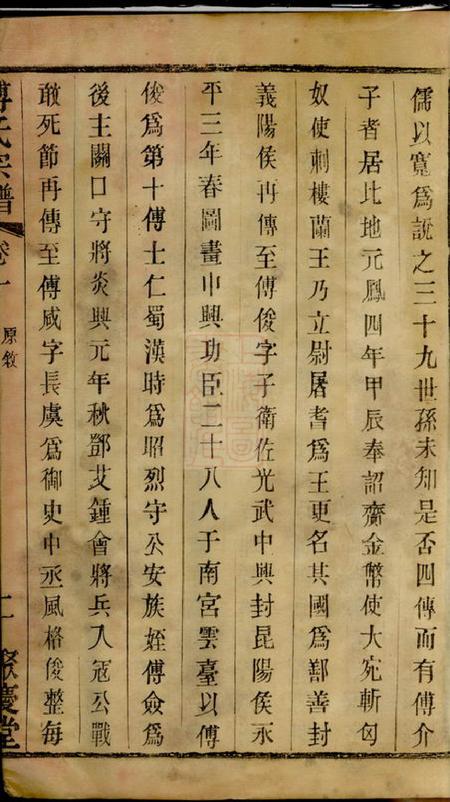 儒以寬爲說之三十九世孫未知是否四傳而有傅介
子者居北地元鳳四年甲辰奉詔齎金幣使大宛斬匈
奴使刺樓蘭王乃立尉屠耆爲王更名其國爲鄯善封
義陽侯再傳至傅俊字子衛佐光武中興封昆陽侯永
平三年春圖畫中興功臣二十八人于南宮雲臺以傅
俊爲第十傅士仁蜀漢時爲昭烈守公安族姪傅僉爲
後主關口守將炎興元年秋鄧艾鍾會將兵入冦公戰
敢死節再傳至傅咸字長虞爲御史中丞風格俊整每
傅氏宗譜 卷一 原敘 二 聚慶堂